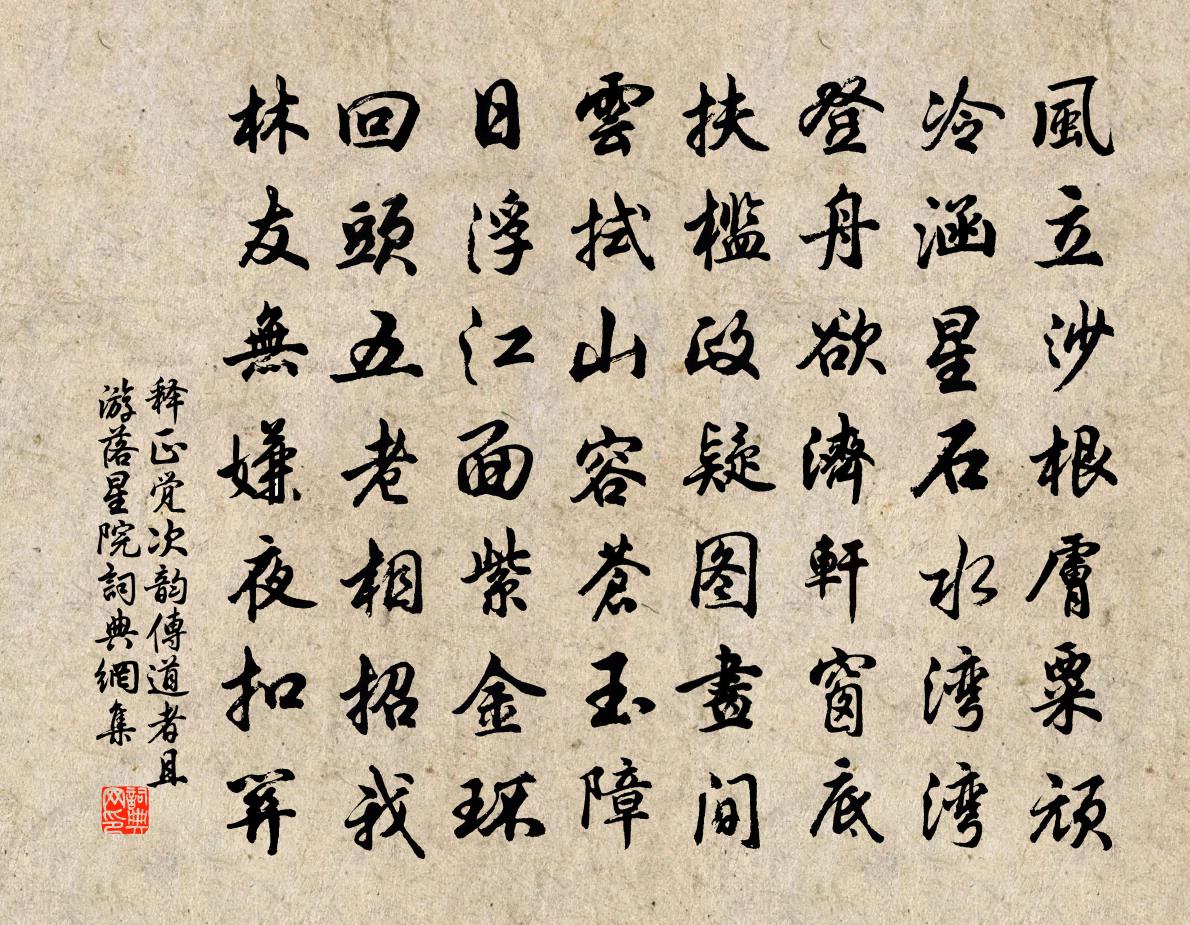 風立沙根膚粟頑
冷涵星石水湾湾
登舟欲濟軒窗底
扶檻政疑图畫間
雲拭山容蒼玉障
日浮江面紫金环
回頭五老相招我
林友無嫌夜扣关
释正觉次韵傳道者且
游落星院詞典網集
詞典
网印